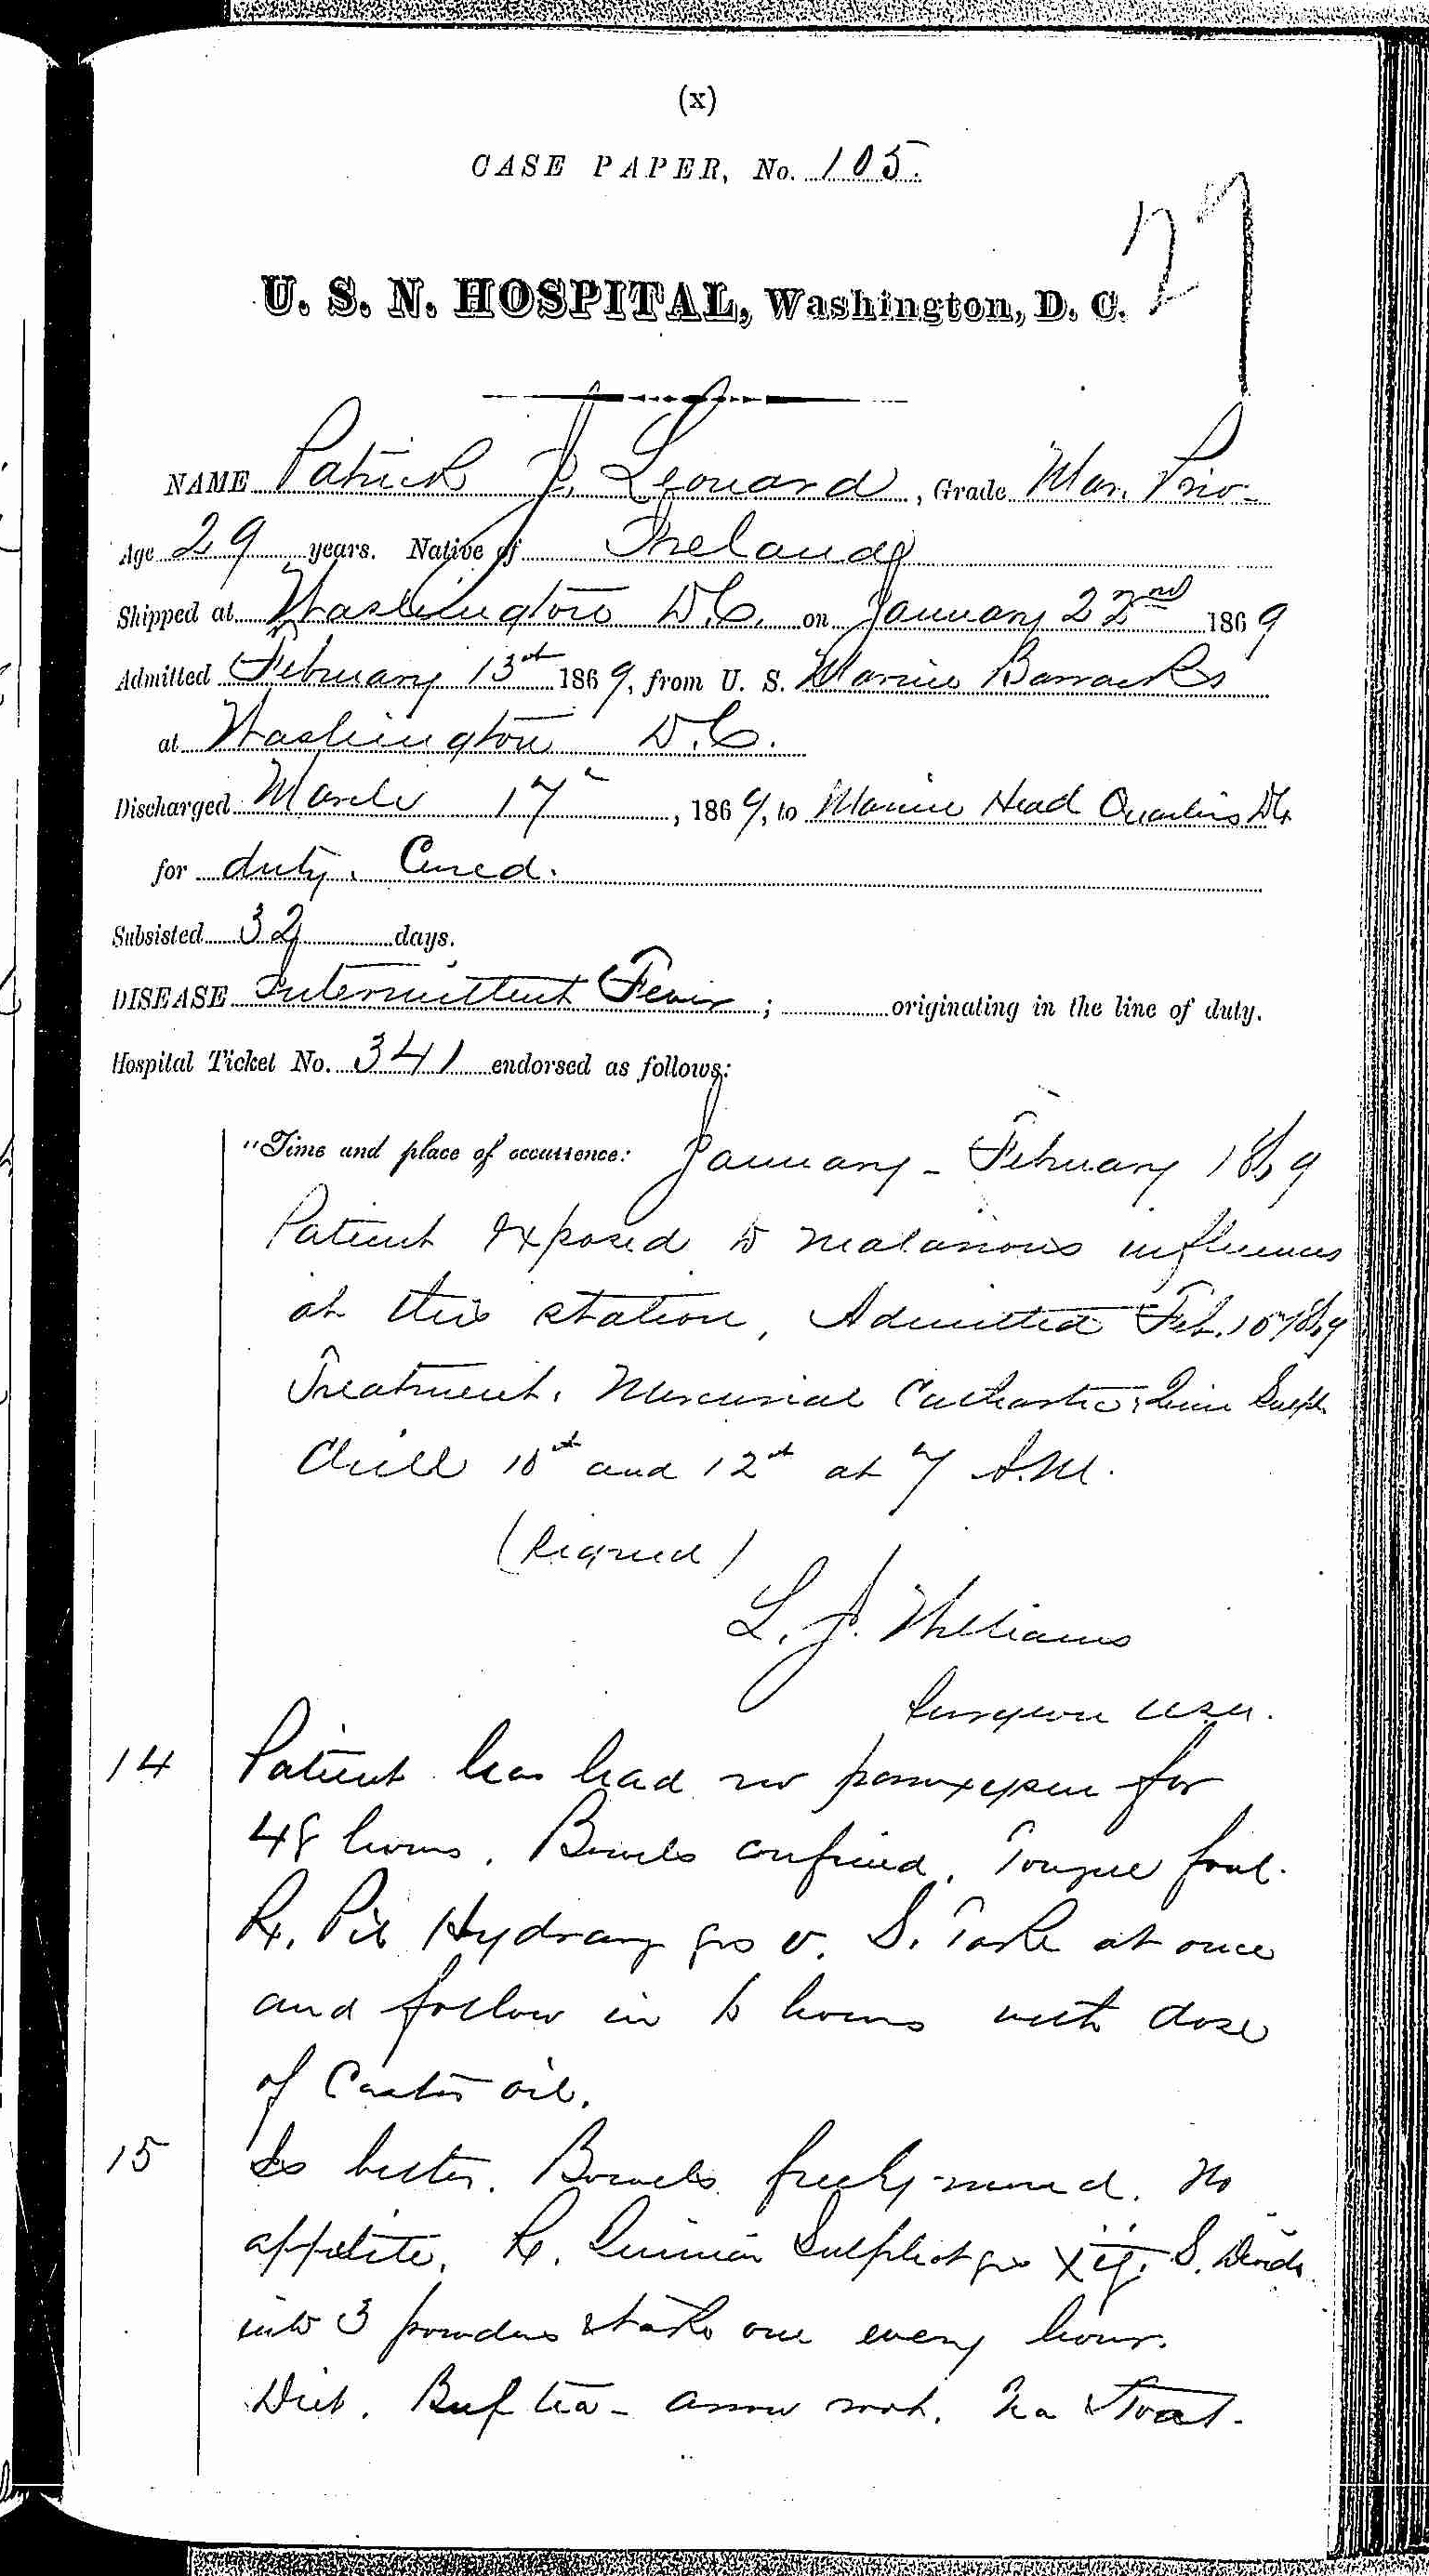 (x)
CASE PAPER, No. 105.
27
U. S. N. HOSPITAL, Washington, D. C.
NAME Patrick J. Leonard, Grade Mar. Priv-
Age 29 years. Native of Ireland
Shipped at Washington D.C. on January 22nd 1869
Admitted February 13th 1869, from U. S. Marine Barracks
at Washington D.C.
Discharged March 17", 1869, to Marine Head Quarters DC
for duty. Cured.
Subsisted 32 days.
DISEASE Intermittent Fever; originating in the line of duty.
Hospital Ticket No. 341 endorsed as follows:
"Time and place of occurrence: January - February 1869
Patient exposed to malarious influences
at this station, Admitted Feb. 10 1869
Treatment. Mercurial Cathartic, Quin Sulph
Chill 10th and 12th at 7 A.M.
(Signed)
L. J. Williams
Surgeon USN.
14 Patient has had no paroxysm for
48 hours. Bowels confined. Tongue foul.
R. Pil Hydrarg grs v. S. Take at once
and follow in 6 hours with dose
of Castor oil.
15 Is better. Bowels freely moved. No
appetite. R. Quiniæ Sulphat grs xij. S. Divide
into 3 powders & take one every hour.
Diet. Beef tea - arrow root. Tea & Toast.